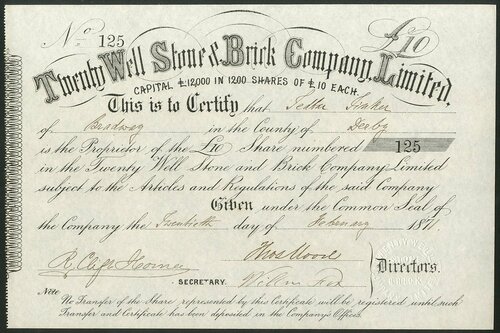 No 125 £10
Twenty Well Stone & Brick Company, Limited.
CAPITAL £12,000 IN 1200 SHARES OF £10 EACH.
This is to Certify that
of Bradway in the County of Derby
is the Proprietor of the £10 Share numbered 125
in the Twenty Well Stone and Brick Company Limited
subject to the Articles and Regulations of the said Company
Given under the Common Seal of
the Company the Twentieth day of February 187
Thos Moore
Directors.
SECRETARY.
Note
No Transfer of the Share represented by this Certificate will be registered until such
Transfer and Certificate has been deposited in the Company's Offices.